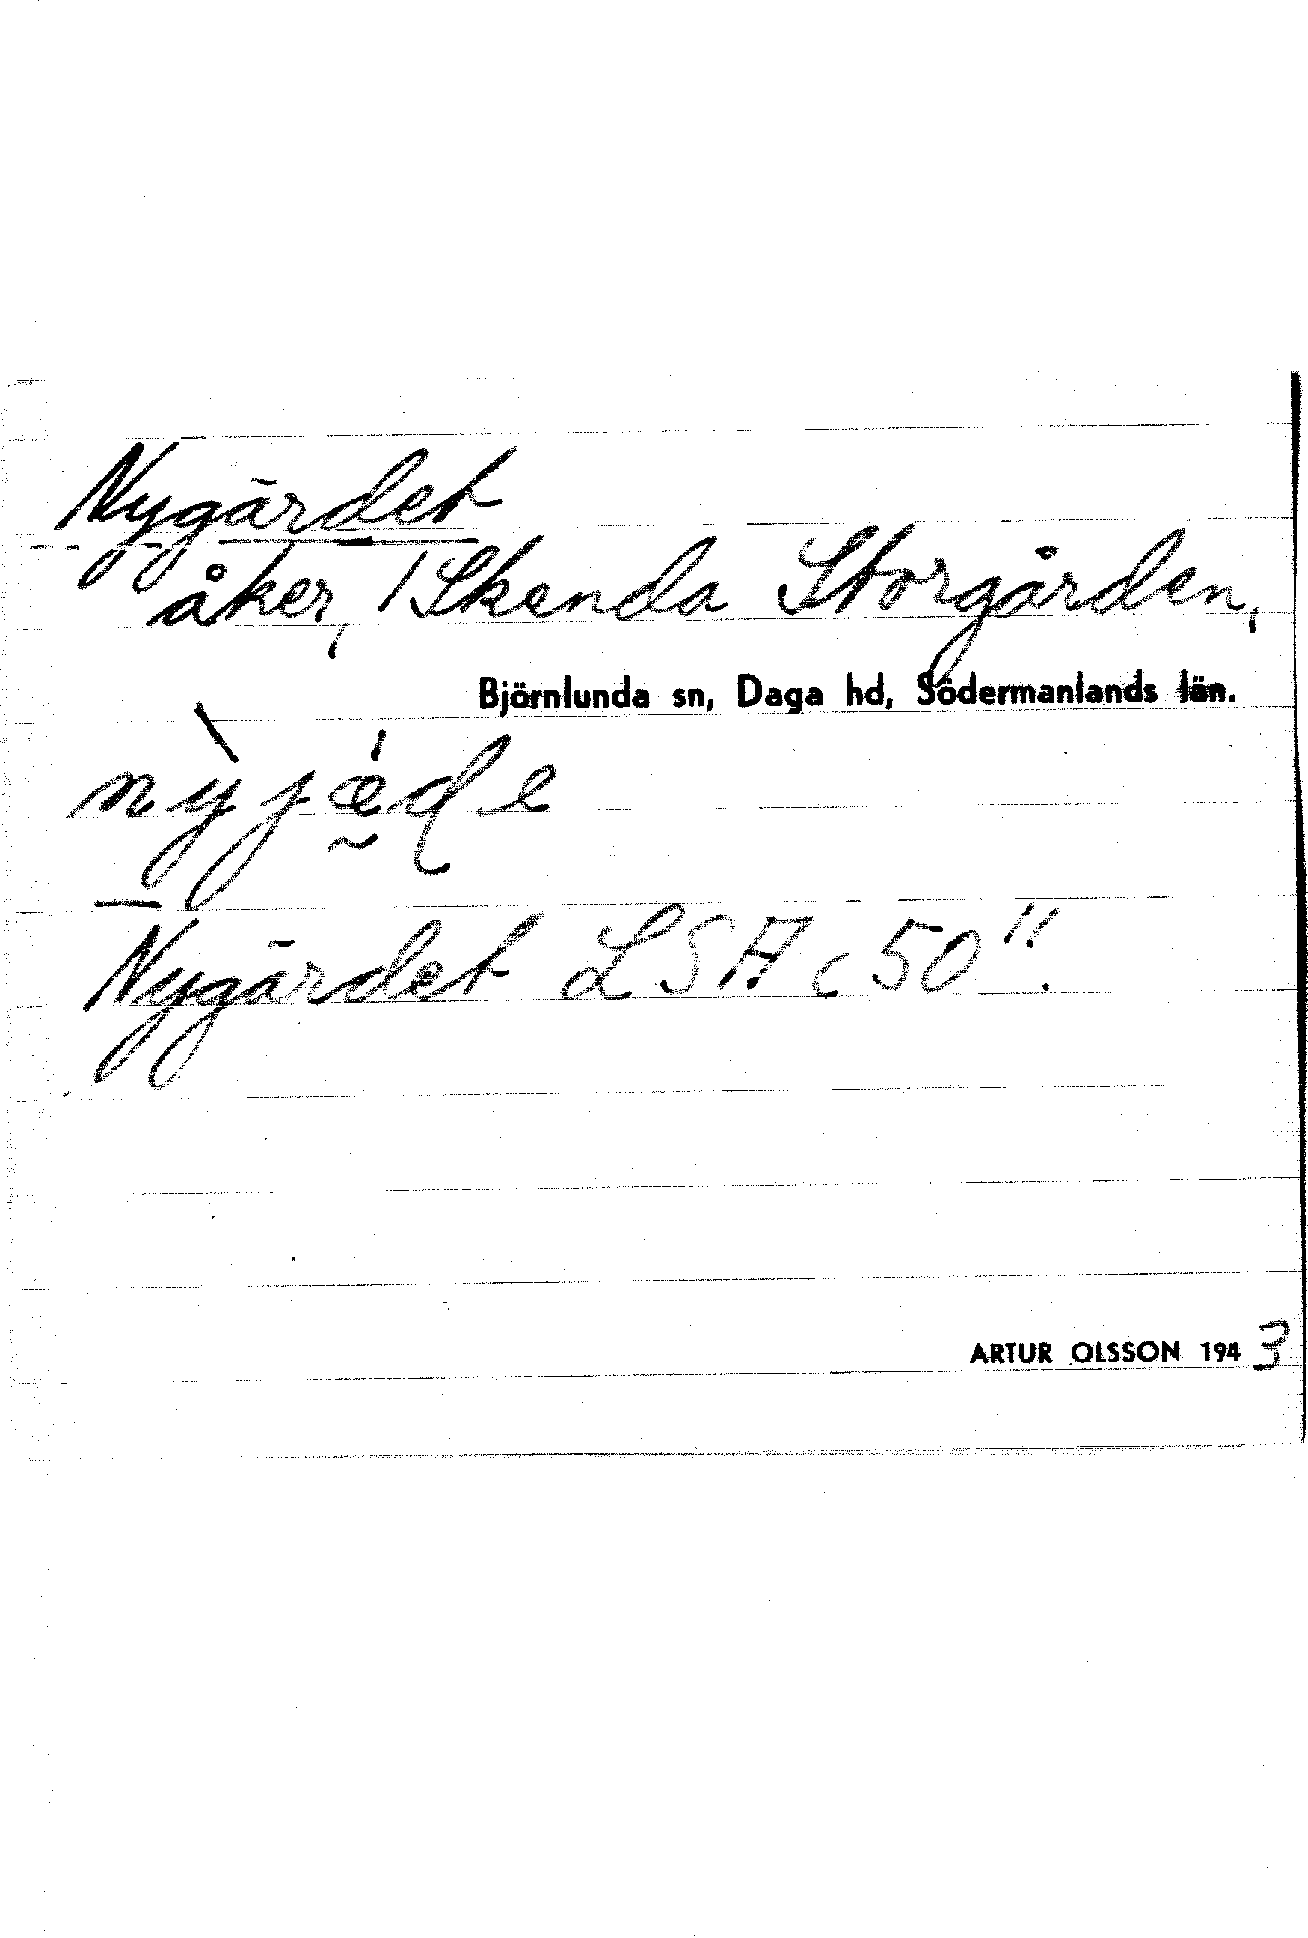 Nygärdet
åker, 1 Skenda Storgården,
Björnlunda sn, Daga hd, Södermanlands län.
Nygärdet LSA c 50".
ARTUR OLSSON 1943